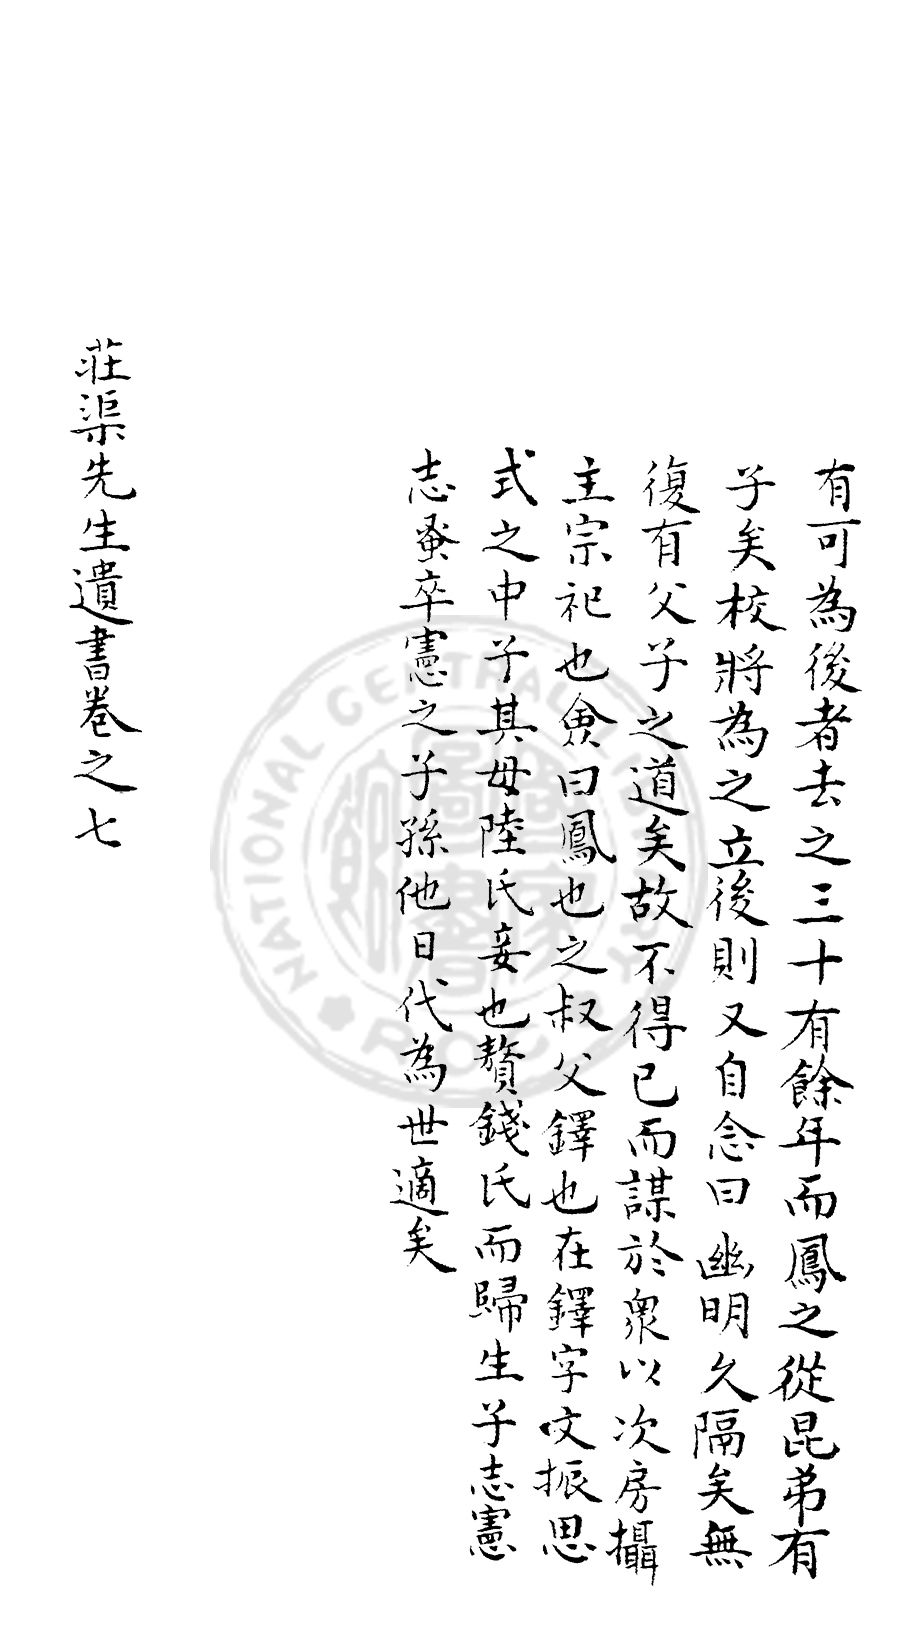 有可為後者去之三十有餘年而鳳之從昆弟有
子矣校將為之立後則又自念曰幽明久隔矣無
復有父子之道矣故不得已而謀於眾以次房攝
主宗祀也僉曰鳳也之叔父鐸也在鐸字文振思
式之中子其母陸氏妾也贅錢氏而歸生子志憲
志蚤卒憲之子孫他日代為世適矣
荘渠先生遺書卷之七
NATIONAL CENTRAL